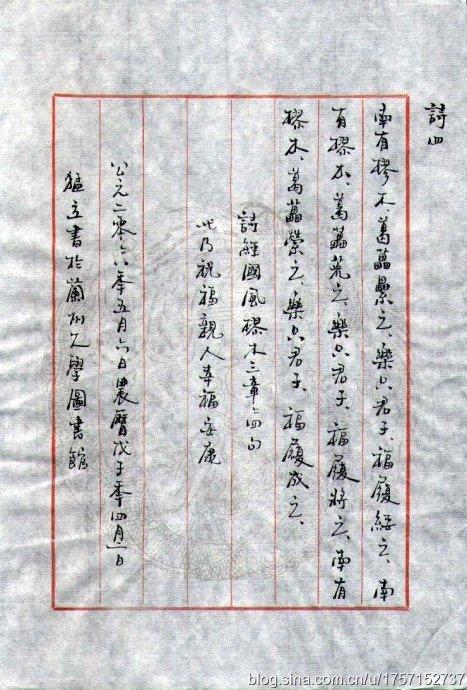 詩四
南有樛木、葛藟纍之、樂只君子、福履綏之、南
有樛木、葛藟荒之、樂只君子、福履將之、南有
樛木、葛藟縈之、樂只君子、福履成之、
詩經國風樛木三章々四句
此乃祝福親人幸福安康
公元二零々八年五月六日農曆戊子年四月二日
猛立書於蘭州大學圖書館
blog.sina.com.cn/u/1757152737